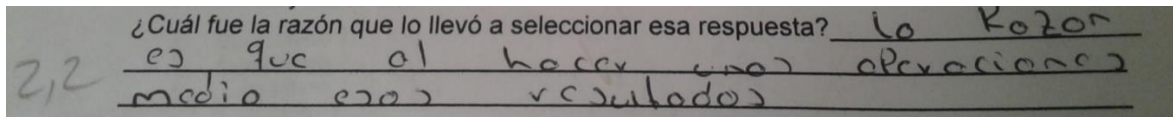 ¿Cuál fue la razón que lo llevó a seleccionar esa respuesta? la Razon
es que al hacer unas operaciones
2,2 medio esos resultados